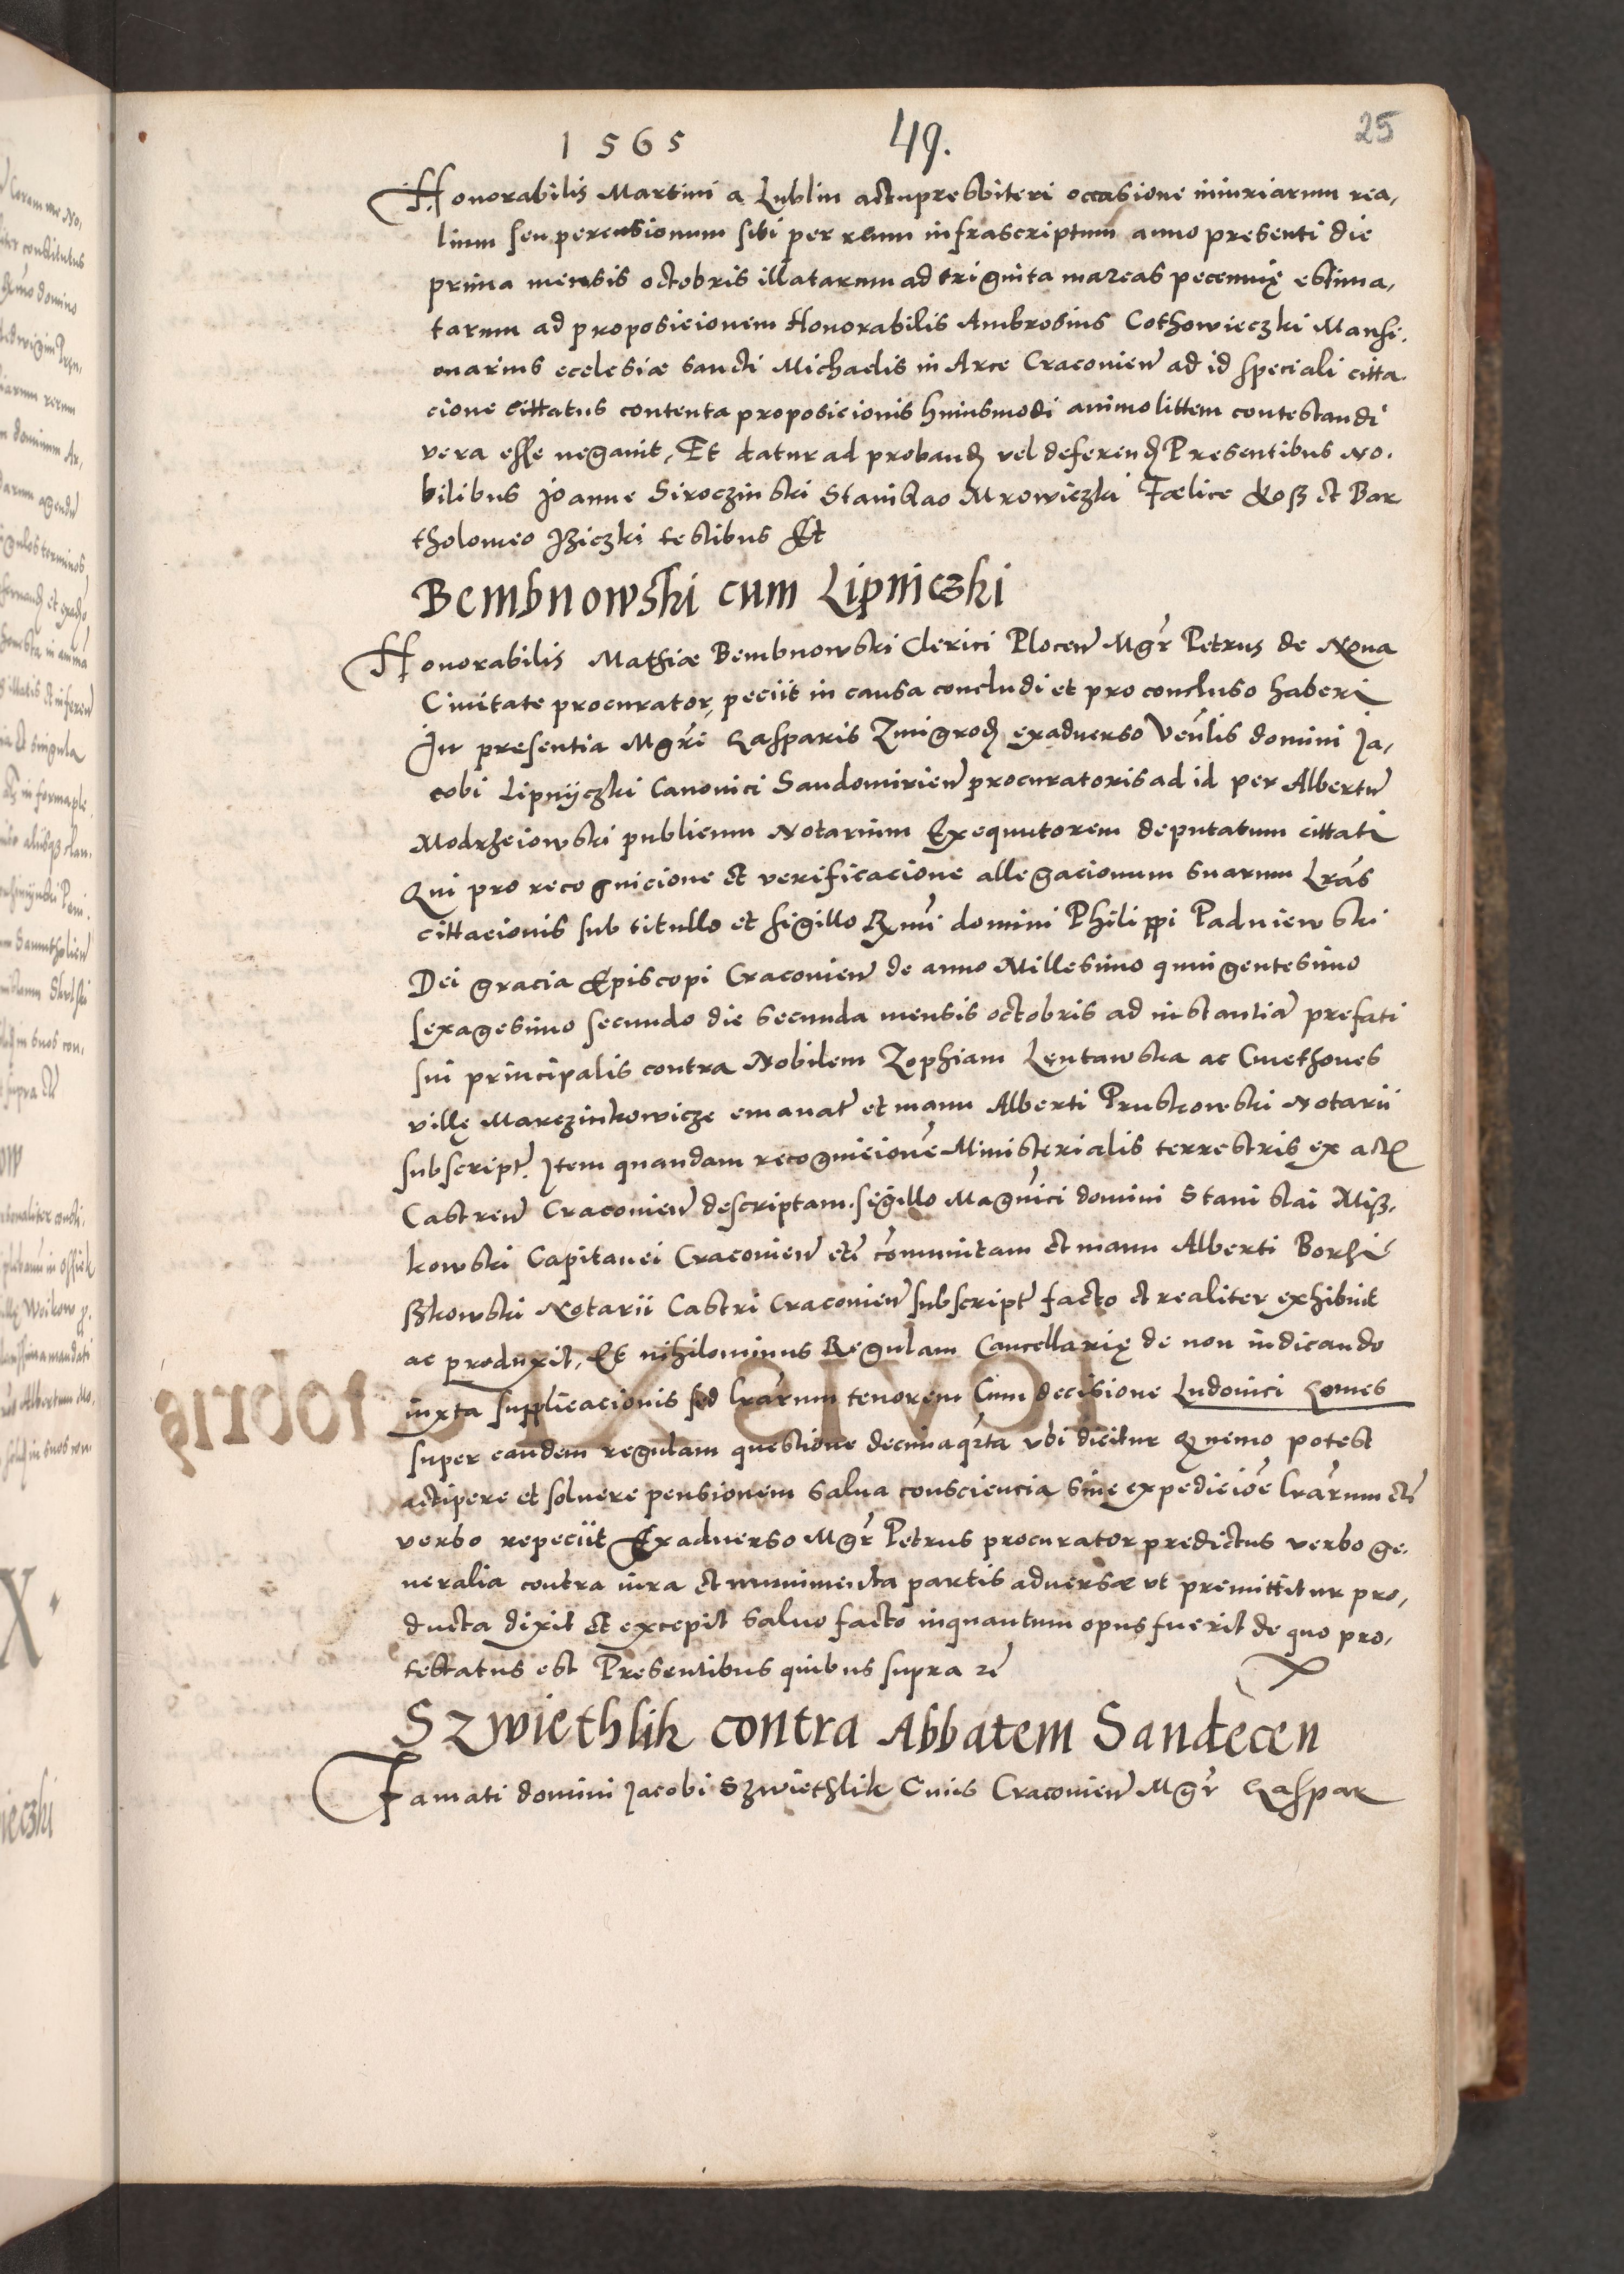 1565 49. 25
Honorabilis Martini a Lublin actu presbiteri occasione iniuriarum rea,
lium seu percussionum sibi per reum infrascriptum anno presenti die
prima mensis octobris illatarum ad triginta marcas pecunię estima,
tarum ad proposicionem Honorabilis Ambrosius Cothowieczki Mansi,
onarius ecclesiæ sancti Michaelis in Arce Cracovien̄ ad id speciali citta,
cione cittatus contenta proposicionis huiusmodi animo littem contestandi
vera esse negavit, Et datur ad proband̄ vel deferend̄ Presentibus No,
bilibus Joanne Siroczinski Stanislao Mrowiczki Fælice et Bar
tholomeo testibus Et
Bembnowski cum Lipniczki
Honorabilis Mathiæ Bembnowski Clerici Plocen̄ Mgr̄ Petrus de Nova
Civitate procurator, peciit in causa concludi et pro concluso haberi
In presentia Mgr̄i Casparis Zmigrod̄ exadverso Ven̄lis domini Ja,
cobi Lipnyczki Canonici Sandomirien̄ procuratoris ad id per Albertū
Modrzeiowski publicum Notarium Exequutorem deputatum cittati
Qui pro recognicione et verificacione allegacionum suarum Lr̄as
cittacionis sub titullo et sigillo Rm̄i domini Philippi Padniewski
Dei gracia Episcopi Cracovien̄ de anno Millesimo quingentesimo
sexagesimo secundo die secunda mensis octobris ad instantiā prefati
sui principalis contra Nobilem Zophiam Lentawska ac Cmethones
villę Marczinkowicze emanat̄ et manu Alberti Pruskowski Notarii
subscript̄. Item quandam recognicionē Ministerialis terrestris ex actis
Castren̄ Cracovien̄ descriptam. sigillo Magn̄ici domini Stanislai Miß,
kowski Capitanei Cracovien̄ etc̄ com̄unitam et manu Alberti
Notarii Castri Cracovien̄ subscript̄ facto et realiter exhibuit
ac produxit, Et nihilominus Regulam Cancellarię de non iudicando
iuxta supplicacionis sed lr̄arum tenorem Cum decisione Ludovici Gomes
super eandem regulam questione decima qr̄ta ubi dicitur Q nemo potest
accipere et solvere pensionem salva consciencia sine expedicīoe lr̄arum etc̄
verbo repeciit Exadverso Mgr̄ Petrus procurator predictus verbo ge,
neralia contra iura et munimenta partis adversæ ut premittitur pro,
ducta dixit et excepit salvo facto inquantum opus fuerit de quo pro,
testatus est Presentibus quibus supra etc̄
Szwiethlik contra Abbatem Sandecen
Famati domini Jacobi Szwiethlik Civis Cracovien̄ Mgr̄ Caspar